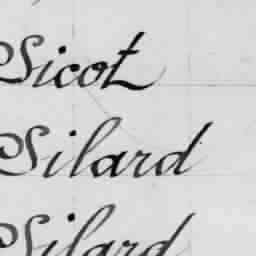 Sicot
Silard
Silard